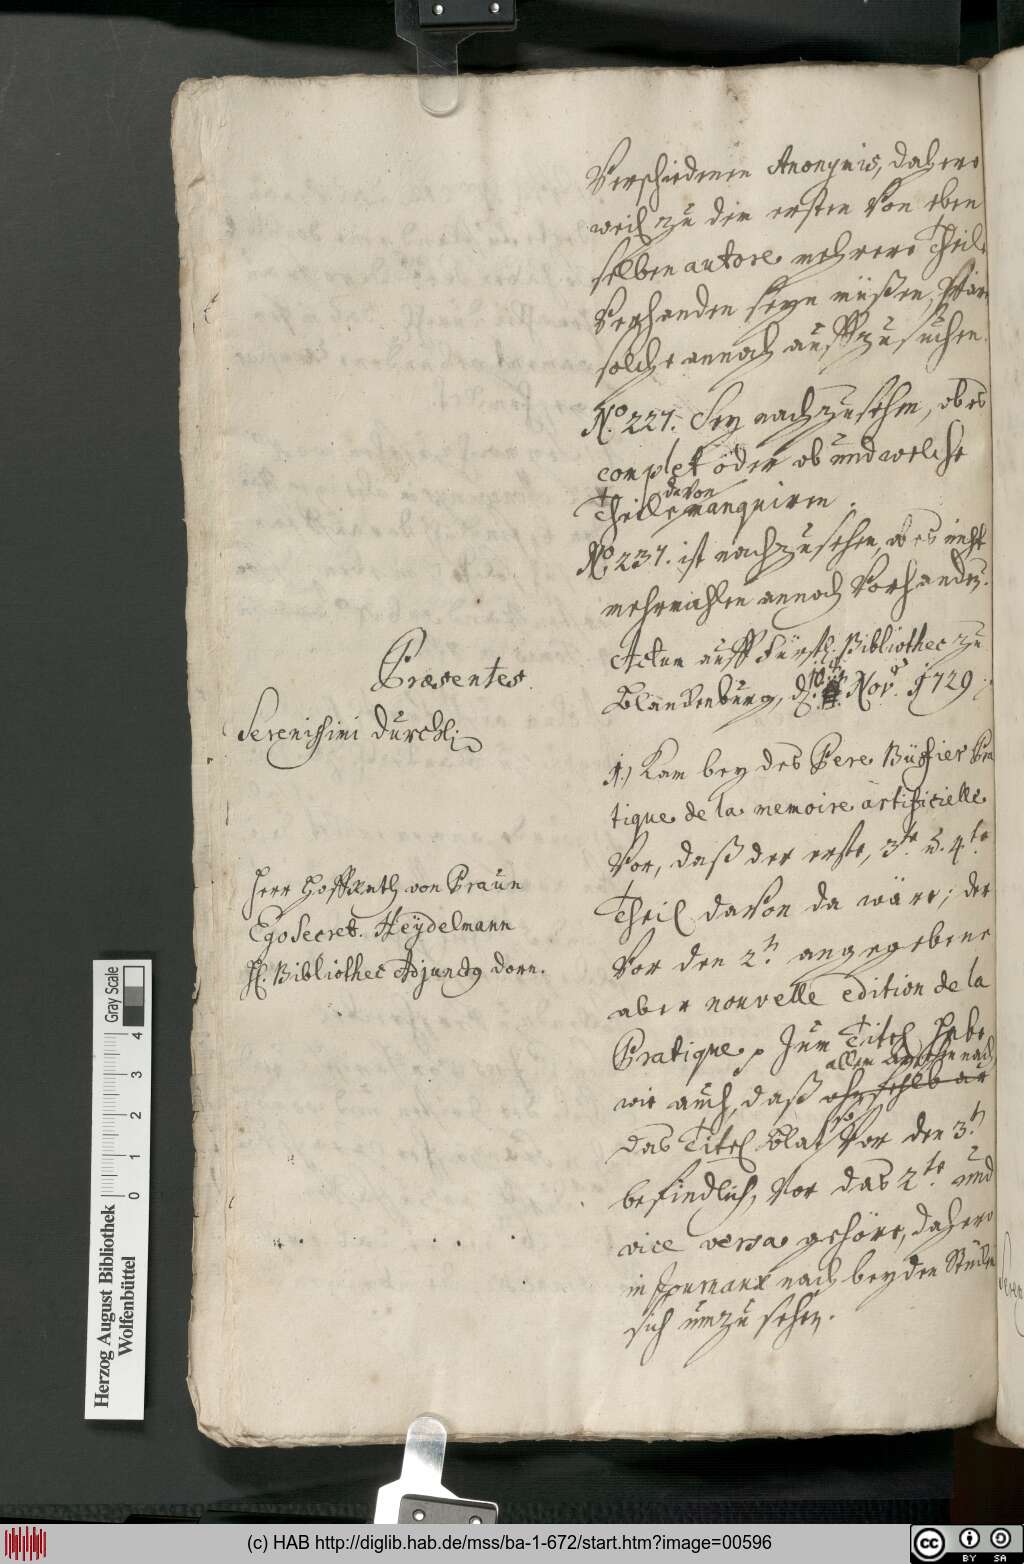 Verschiedenen Anonymis, dahero
weil zu dem ersten Von eben
selben autore mehrere Theile
Vorhanden seyn müßen, wären
solche annoch auffzusuchen.
No. 227. Sey nachzusehen, ob es
complet oder ob und welche
davon
Theile manquiren.
No. 237. ist nachzusehen, ob es nicht
mehrmahlen annoch Vorhanden.
Actum auff Fürstl. Bibliothec zu
Blanckenburg, d. Nov. 1729
Præsentes
Serenissimi Durchl.
Herr Hoffrath von Praun
Ego Secret. Heydelmann
H. Bibliothec Adjunctg Dorn.
1.) Kam bey des Pere Buffier Pra
tique de la memoire artificielle
Vor, daß der erste, 3te u. 4te
Theil davon da wäre; der
Vor den 2n angegebene
aber nouvelle edition de la
Pratique p zum Titel habe
allem ansehen nach
wie auch, daß ohnfehlbar
so
das Titel Blat Vor den 3n
befindlich, Vor das 2te und
vice versa gehöre, dahero
in Journaux nach beyden Stücken
sich umzusehen.
Herzog August Bibliothek
Wolfenbüttel
Gray Scale
0 1 2 3 4
(c) HAB http://diglib.hab.de/mss/ba-1-672/start.htm?image=00596
cc BY SA